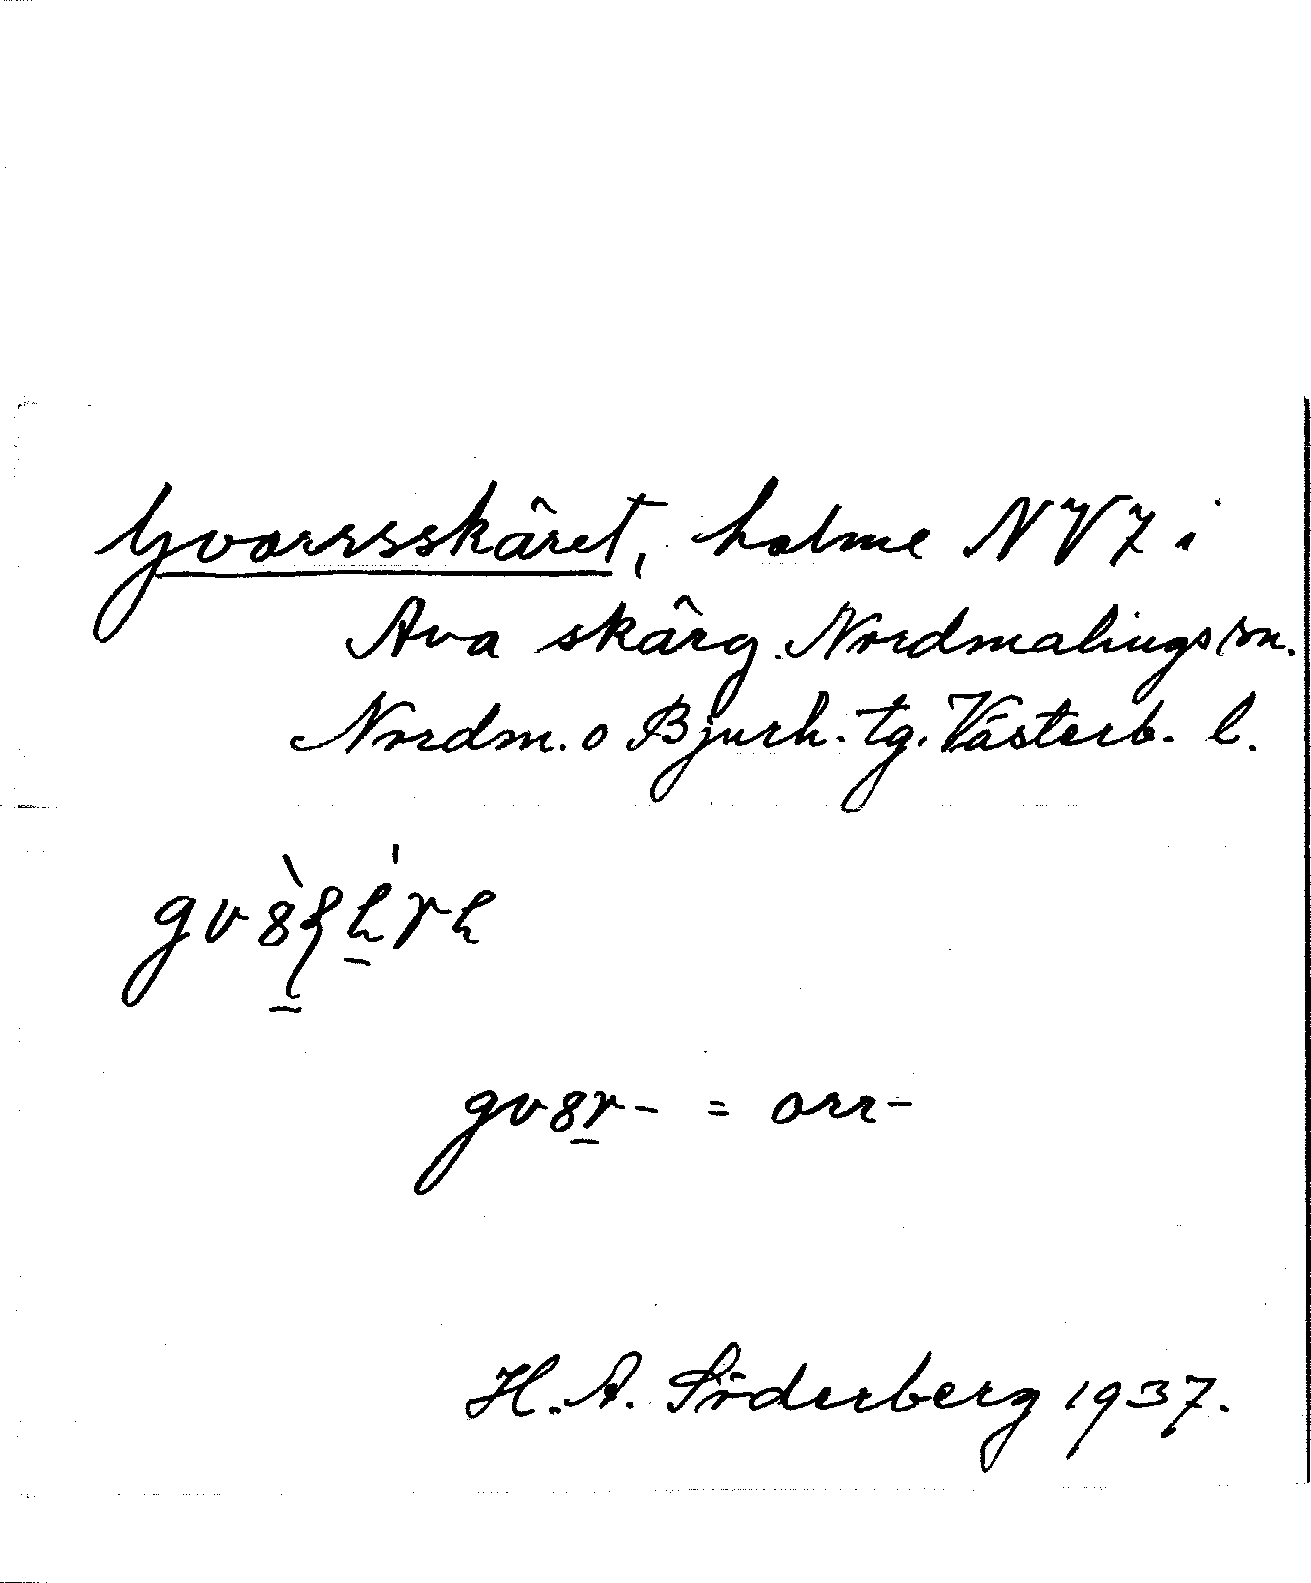 Gvorrsskäret, holme NV7 i
Ava skärg. Nordmalings sn.
Nordm. o Bjurh. tg. Västerb. l.
gv8r- = orr-
H. A. Söderberg 1937.